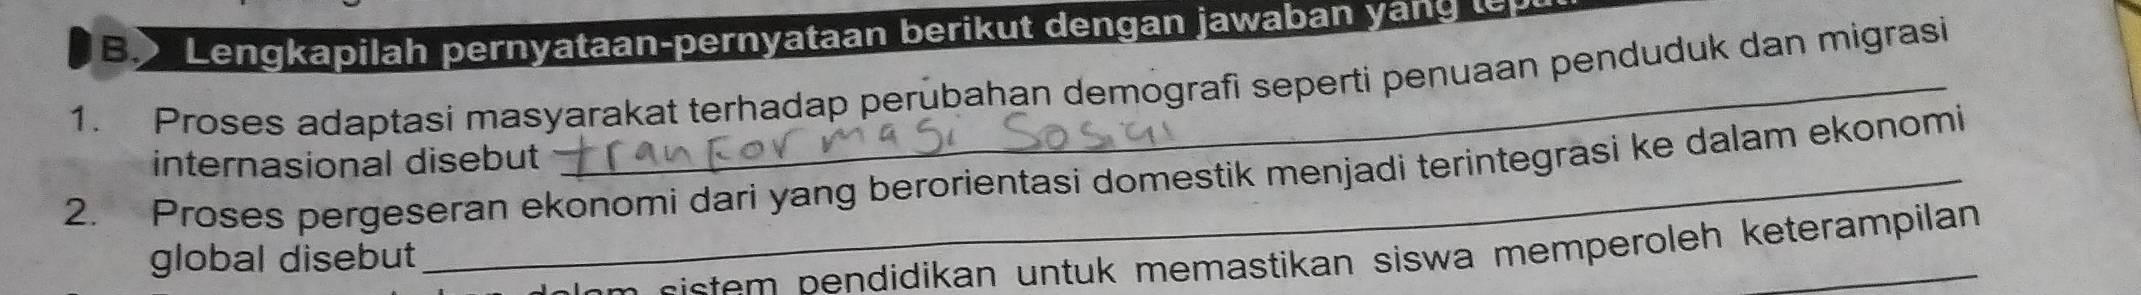 B. Lengkapilah pernyataan-pernyataan berikut dengan jawaban yang
1. Proses adaptasi masyarakat terhadap perubahan demografi seperti penuaan penduduk dan migrasi
internasional disebut tranformasi Sosial
2. Proses pergeseran ekonomi dari yang berorientasi domestik menjadi terintegrasi ke dalam ekonomi
global disebut
sistem pendidikan untuk memastikan siswa memperoleh keterampilan